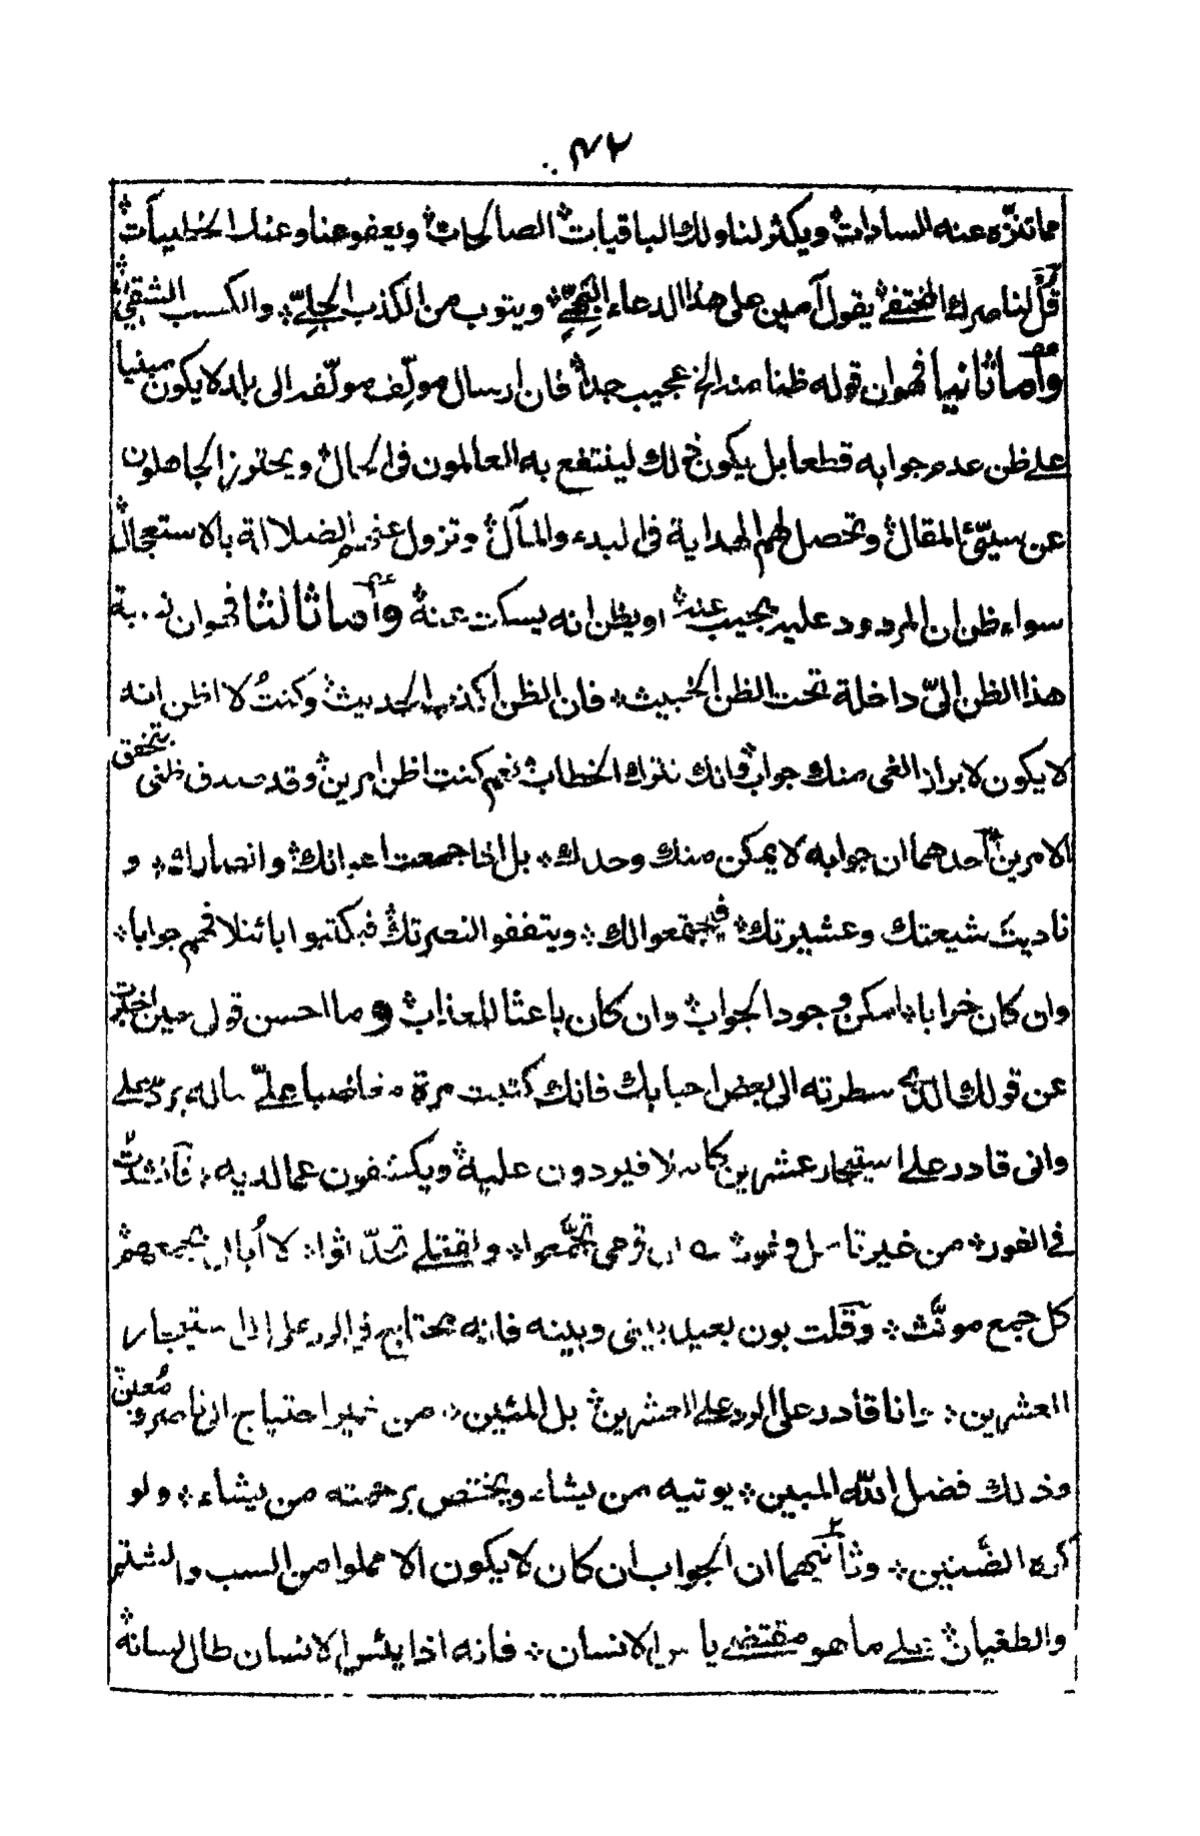 ٤٢
مما تنزّه عنه السادات ويكثر لنا ولك الباقيات الصالحات ويعفو عنا وعنك الخطيآت
قُل لناصرك المختفے يقول آمين على هذا الدعاء البَهِيّ ويتوب من الكذب الجَلِيّ والكسب الشقيّ
وأما ثانيا فهو ان قوله ظنا منه الخ عجيب جدا فان ارسال مولِّف مولَّفه الى بلد لا يكون مبنيا
علے ظن عدم جوابه قطعا بل يكون ذلك لينتفع به العالمون فى الحال ويحترز الجاهلون
عن سيّئ المقال وتحصل لهم الهداية فى البدء والمآل وتزول عنهم الضلالة بالاستعجال
سواء ظن ان المردود عليه يجيب عنه او يظن انه يسكت عنه وأما ثالثا فهو ان نسبة
هذا الظن الىّ داخلة تحت الظن الخبيث فان الظن اكذب الحديث وكنتُ لا اظن انه
لا يكون لابراز الغى منك جواب فانك تترك الخطاب نعم كنت اظن امرين وقد صدف ظنى بتحقق
الامرين احدهما ان جوابه لا يمكن منك وحدك بل اذا جمعت اعوانك وانصارك و
ناديتَ شيعتك وعشيرتك فيجتمعوا لك ويتففو النصرتك فيكتبوا بائتلافهم جوابا
وان كان خرابا امكن وجود الجواب وان كان باعثا للعذاب وما احسن قولى حين اخبرت
عن قولك الذى سطرته الى بعض احبابك فانك كتبت مرة مغاضبا علىّ بانه يرد علے
وانى قادر علے استيجار عشرين كاملا فيردون عليه ويكشفون عما لديه فانشدت
فے الفور من غير تامل وغور ان قومى تجمَّعوا وبقتلے تحدّثوا لا اُبالى بجمعهم
كل جمع مونَّث وقلت بون بعيد بينى وبينه فانه يحتاج فى الرد على الى استيجار
العشرين وانا قادر على الرد علے العشرين بل المئين من غير احتياج الى ناصر ومُعين
وذلك فضل الله المبين يوتيه من يشاء ويختص برحمته من يشاء ولو
كره الضَّنين وثانيهما ان الجواب ان كان لا يكون الا مملوا من السب والشتم
والطغيان علے ما هو مقتضے ياس الانسان فانه اذا يئس الانسان طال لسانه